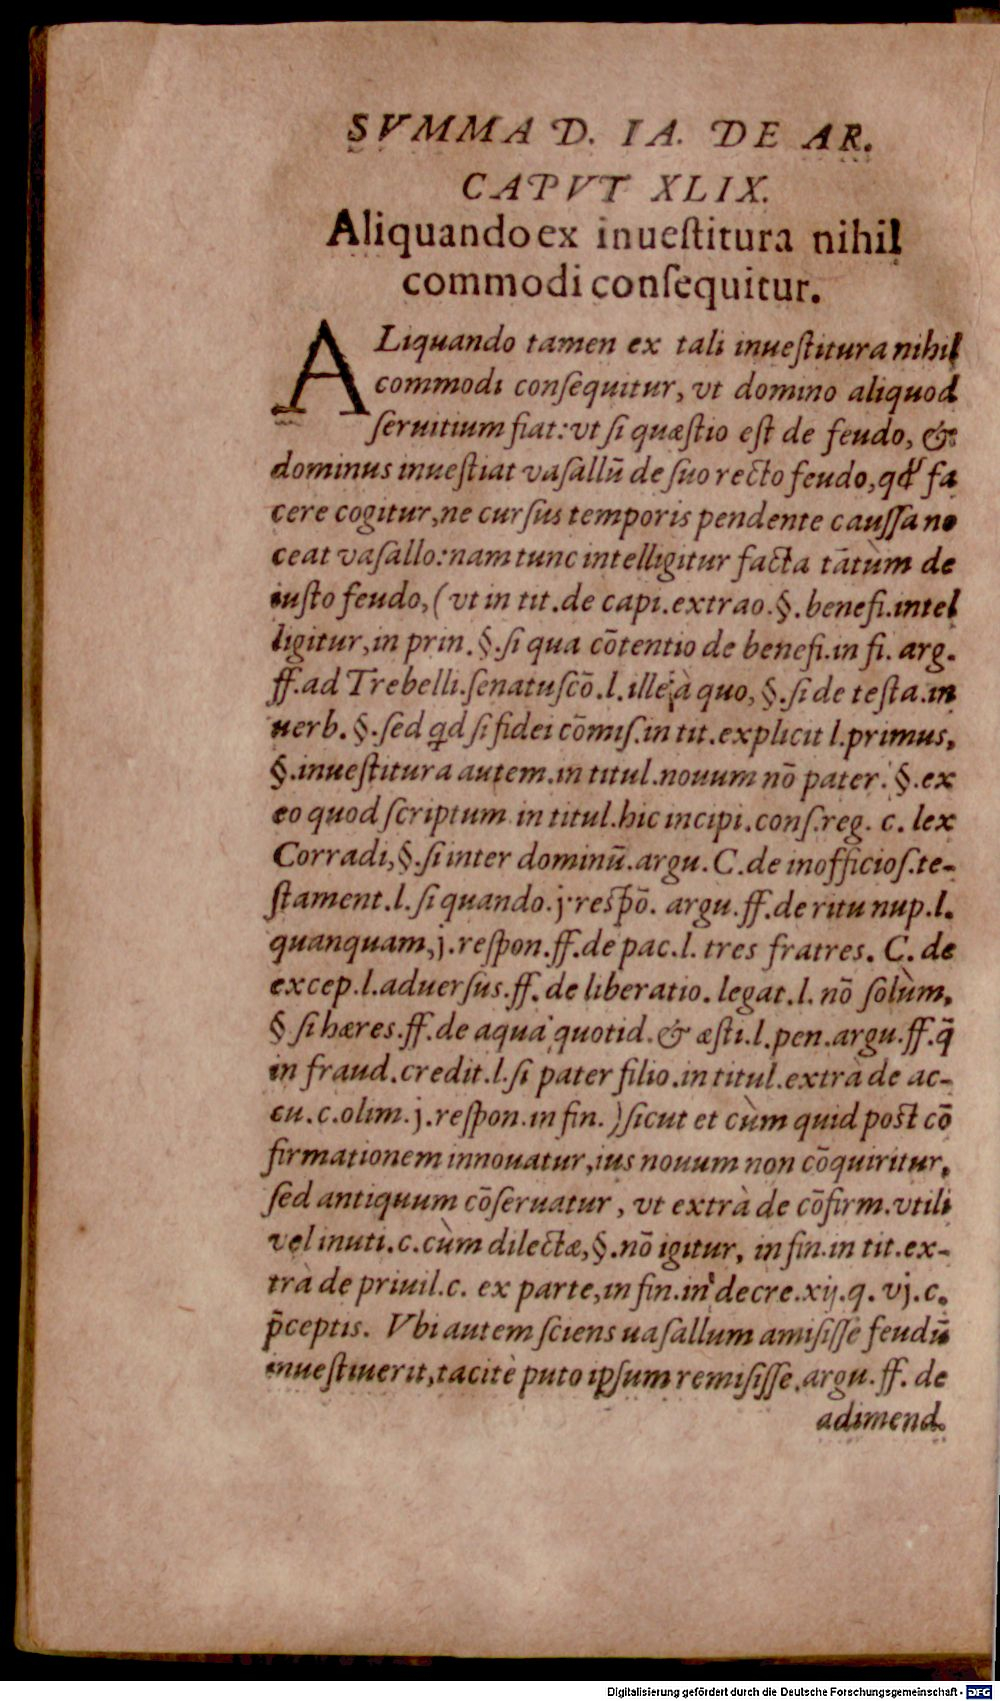 SVMMA D. IA. DE AR.
CAPVT XLIX.
Aliquando ex inueſtitura nihil
commodi conſequitur.
ALiquando tamen ex tali inueſtitura nihil
commodi conſequitur, vt domino aliquod
ſeruitium fiat: vt ſi quæſtio eſt de feudo, &
dominus inueſtiat vaſallū de ſuo recto feudo, qđ fa
cere cogitur, ne curſus temporis pendente cauſſa no
ceat vaſallo: nam tunc intelligitur facta tātùm de
iuſto feudo, (vt in tit. de capi. extrao. §. benefi. intel
ligitur, in prin. §. ſi qua cōtentio de benefi. in fi. arg.
ff. ad Trebelli. ſenatuſcō. l. ille à quo, §. ſi de teſta. in
uerb. §. ſed qd ſi fidei cōmiſ. in tit. explicit l. primus,
§. inueſtitura autem. in titul. nouum nō pater. §. ex
eo quod ſcriptum in titul. hic incipi. conſ. reg. c. lex
Corradi, §. ſi inter dominū. argu. C. de inofficioſ. te-
ſtament. l. ſi quando. j. reſpō. argu. ff. de ritu nup. l.
quanquam, j. reſpon. ff. de pac. l. tres fratres. C. de
excep. l. aduerſus. ff. de liberatio. legat. l. nō ſolùm,
§ ſi hæres. ff. de aqua quotid. & æſti. l. pen. argu. ff. q̄
in fraud. credit. l. ſi pater filio. in titul. extrà de ac-
cu. c. olim. j. reſpon. in fin. ) ſicut et cùm quid poſt cō
firmationem innouatur, ius nouum non cōquiritur,
ſed antiquum cōſeruatur, vt extrà de cōfirm. vtili
vel inuti. c. cùm dilectæ, §. nō igitur, in fin. in tit. ex-
trà de priuil. c. ex parte, in fin. in decre. xij. q. vj. c.
p̄ceptis. Vbi autem ſciens uaſallum amiſiſſe feudū
inueſtiuerit, tacitè puto ipſum remiſiſſe. argu. ff. de
adimend.
Digitalisierung gefördert durch die Deutsche Forschungsgemeinschaft - DFG